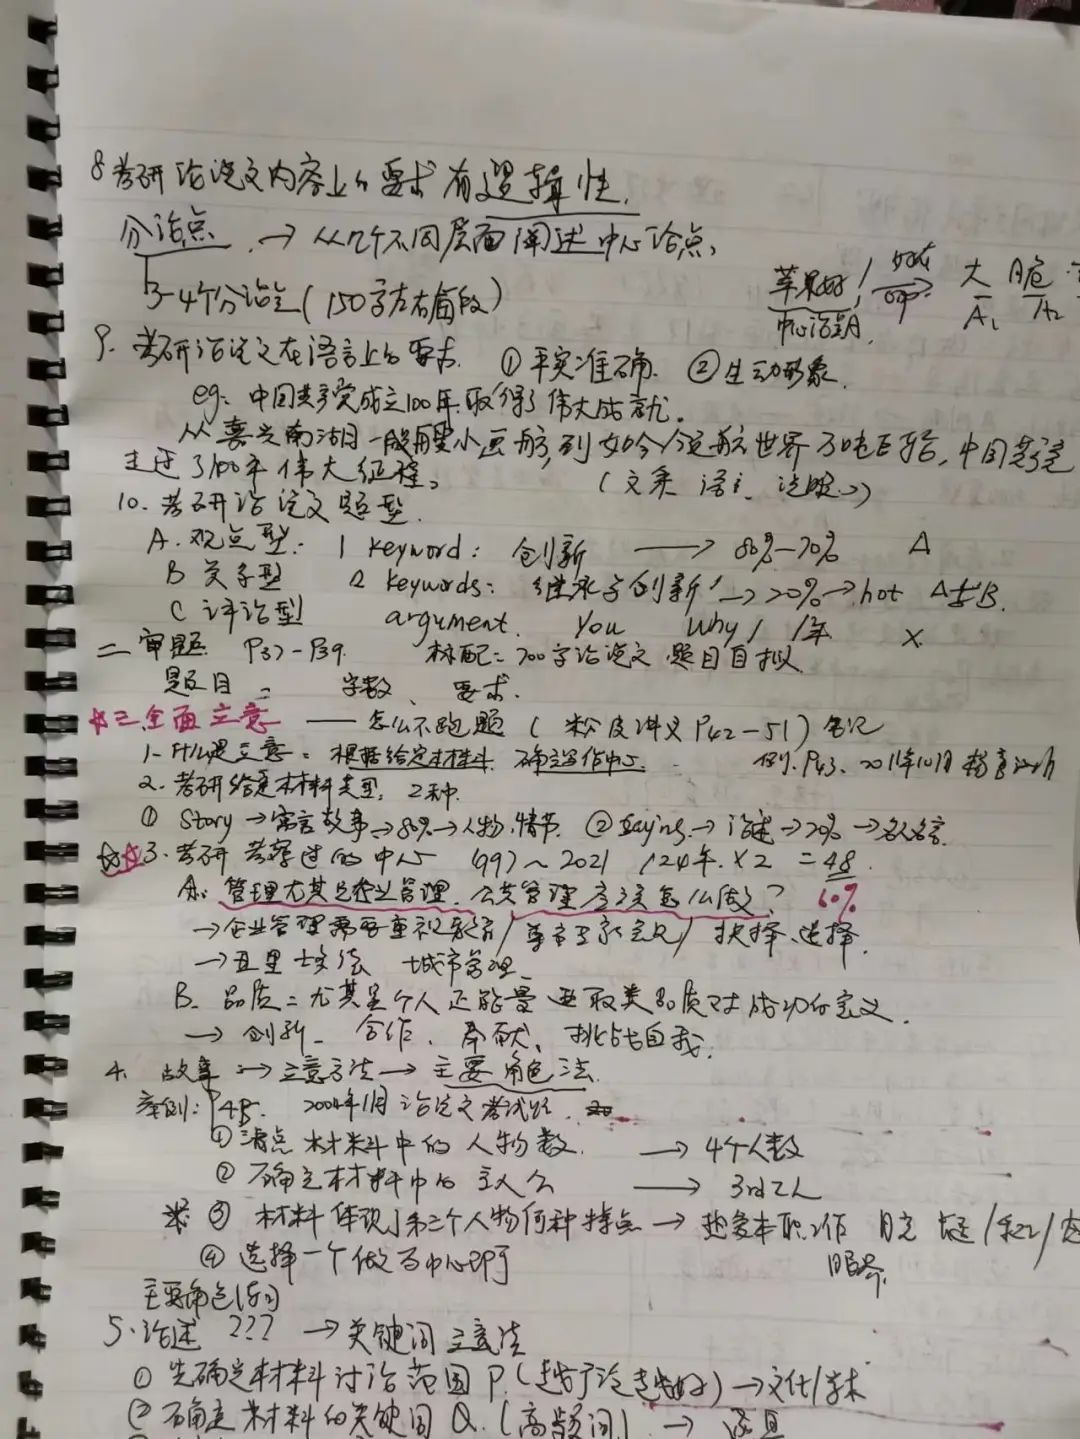 8 考研论说文内容上的要求 有逻辑性.
分论点 → 从几个不同层面阐述中心论点,
3-4个分论点(150字左右每段)
苹果好! 好在 → 大 脆
中心论点 A1 A2
9. 考研论说文在语言上的要求. ①平实准确. ②生动形象.
eg: 中国共产党成立100年.取得了伟大成就.
从嘉兴南湖 一般 小画舫,到如今领航世界 万吨巨轮,中国共产党
走过了100年伟大征程。 (文采 语言
10. 考研论说文题型.
A. 观点型: 1 keyword: 创新 → 80%-70% A
B 关系型 2 keywords: 继承与创新! → 20% → hot A与B.
C 评论型 argument. You Why! 1年 X
二 审题 P37-P39. 标配: 700字论说文 题目自拟
题目 = 字数、要求.
☆三.全面立意 —— 怎么不跑题 (粉皮讲义 P42-51)笔记
1. 什么是立意: 根据给定材料 确定写作中心. 例. P43、2011年10月
2. 考研给定材料类型: 2种.
① Story → 寓言故事 → 80% → 人物.情节. ② Saying → 论述 → 20% → 名人名言.
☆☆3. 考研 考察过的中心 1997~2021 /24年.×2 = 48.
A: 管理尤其是企业管理. 公共管理应该怎么做? 60%
→企业管理需要重视 / / 抉择、选择.
→ 城市管理
B. 品质: 尤其是个人正能量 进取类品质对成功的意义.
→ 创新. 合作、奉献、挑战自我.
4. 故事 → 立意方法 → 主要角色法.
案例: P48. 2004年1月论说文考试题.
①清点 材料中的人物数. → 4个人数
②确定材料中的 主人公 → 3rd 工人
※ ③ 材料体现了第三个人物何种特点 → 热爱本职工作
④ 选择一个做为中心即可 眼界.
主要角色
5.论述 ??? → 关键词立意法
① 先确定材料讨论范围P.(越 越好) → 文化/学术
② 确定材料的关键词 Q.(高频词) →